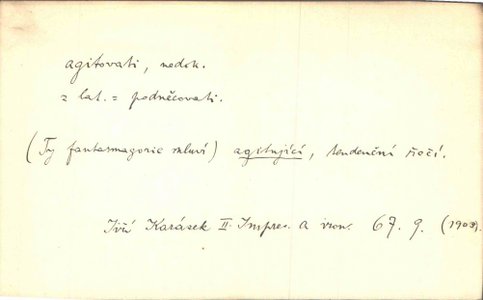 agitovati, nedok.
z lat. = podněcovati.
(Ty fantasmagorie mluví) agitující, tendenční řečí.
Jiří Karásek II. Impres. a iron. 67. 9. (1903).